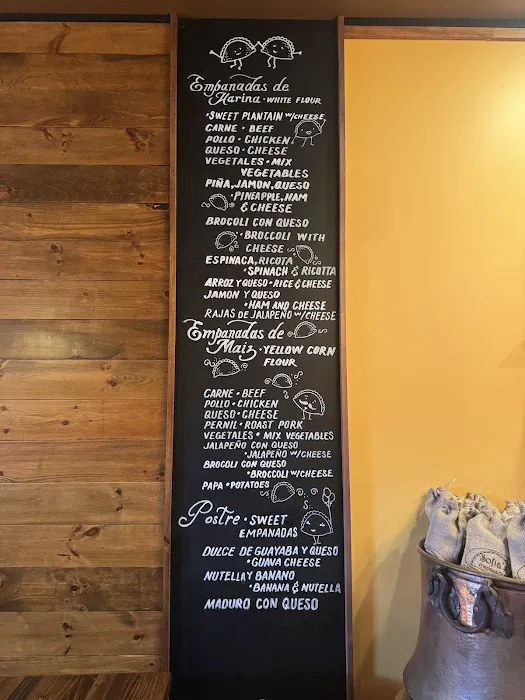 Empanadas de
Harina · WHITE FLOUR
· SWEET PLANTAIN W/CHEESE
CARNE · BEEF
POLLO · CHICKEN
QUESO · CHEESE
VEGETALES · MIX
VEGETABLES
PIÑA, JAMON, QUESO
· PINEAPPLE, HAM
& CHEESE
BROCOLI CON QUESO
· BROCCOLI WITH
CHEESE
ESPINACA, RICOTA
· SPINACH & RICOTTA
ARROZ Y QUESO · RICE & CHEESE
JAMON Y QUESO
· HAM AND CHEESE
RAJAS DE JALAPEÑO W/CHEESE
Empanadas de
Maiz · YELLOW CORN
FLOUR
CARNE · BEEF
POLLO · CHICKEN
QUESO · CHEESE
PERNIL · ROAST PORK
VEGETALES · MIX VEGETABLES
JALAPEÑO CON QUESO
· JALAPEÑO W/CHEESE
BROCOLI CON QUESO
· BROCCOLI W/CHEESE
PAPA · POTATOES
Postre · SWEET
EMPANADAS
DULCE DE GUAYABA Y QUESO
· GUAVA CHEESE
NUTELLA Y BANANO
· BANANA & NUTELLA
MADURO CON QUESO
Sofia